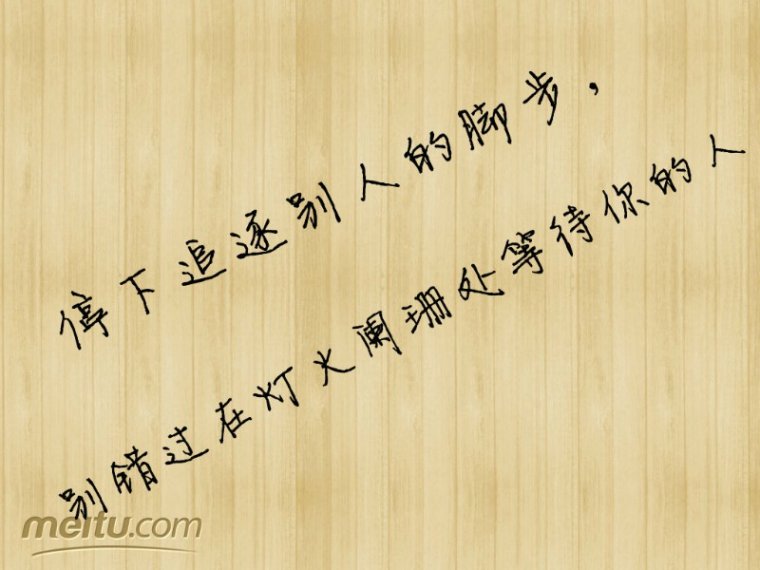 停下追逐别人的脚步,
别错过在灯火阑珊处等待你的人
meitu.com